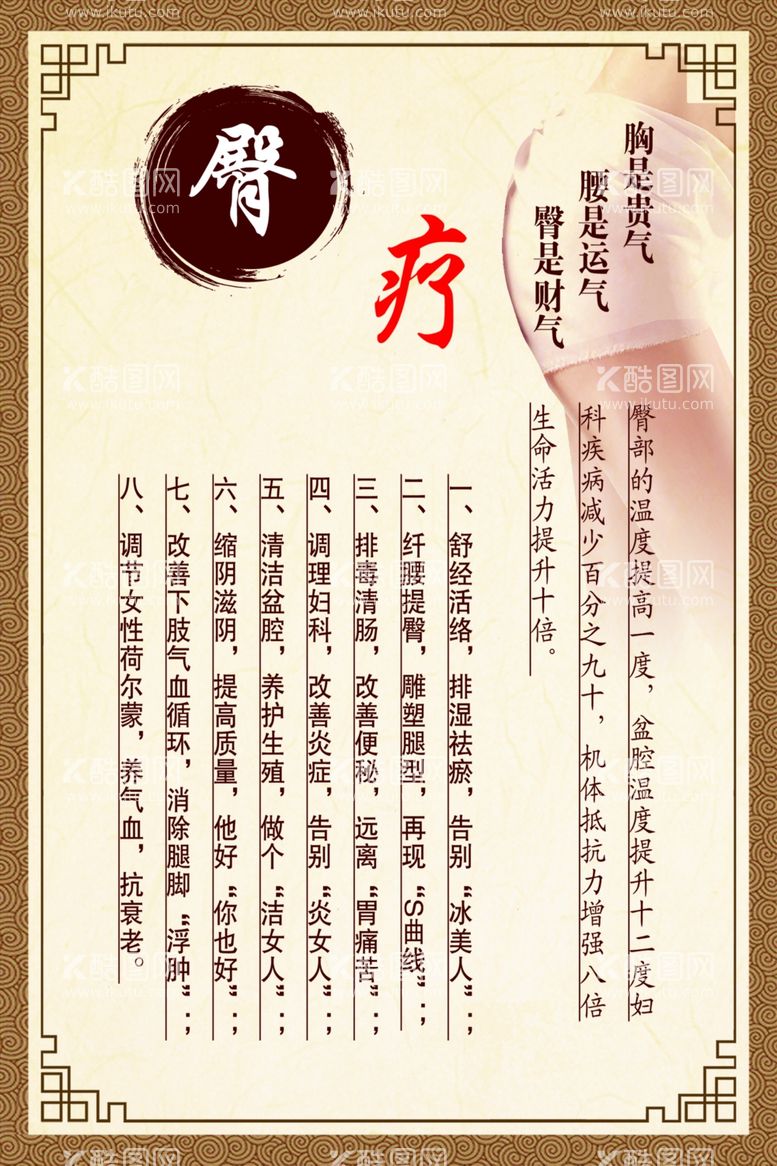 臀
疗
胸是贵气
腰是运气
臀是财气
臀部的温度提高一度，盆腔温度提升十二度妇
科疾病减少百分之九十，机体抵抗力增强八倍
生命活力提升十倍。
一、舒经活络，排湿祛瘀，告别“冰美人”；
二、纤腰提臀，雕塑腿型，再现“S曲线”；
三、排毒清肠，改善便秘，远离“胃痛苦”；
四、调理妇科，改善炎症，告别“炎女人”；
五、清洁盆腔，养护生殖，做个“洁女人”；
六、缩阴滋阴，提高质量，他好“你也好”；
七、改善下肢气血循环，消除腿脚“浮肿”；
八、调节女性荷尔蒙，养气血，抗衰老。
酷图网
www.ikutu.com